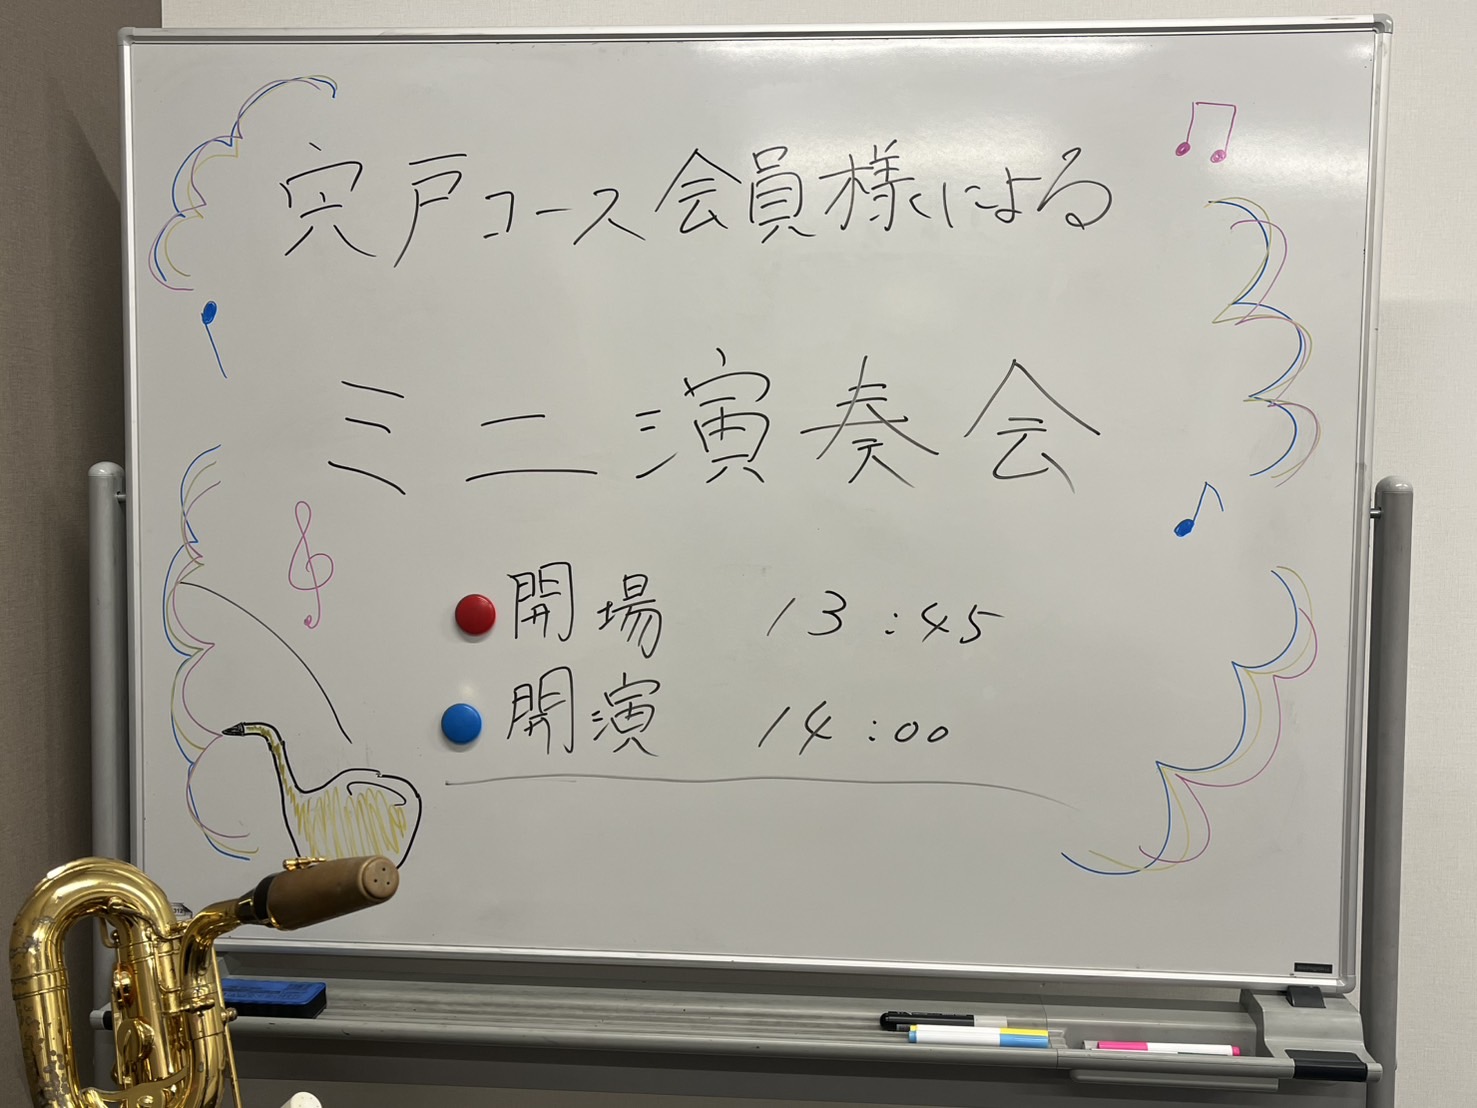 宍戸コース会員様による
ミニ演奏会
開場 13:45
開演 14:00